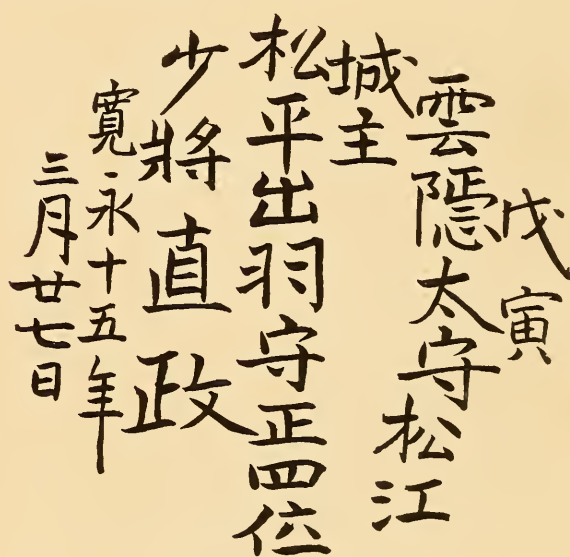 戊寅
雲隠太守松江
城主
松平出羽守正四位
少將直政
寛永十五年
三月廿七日